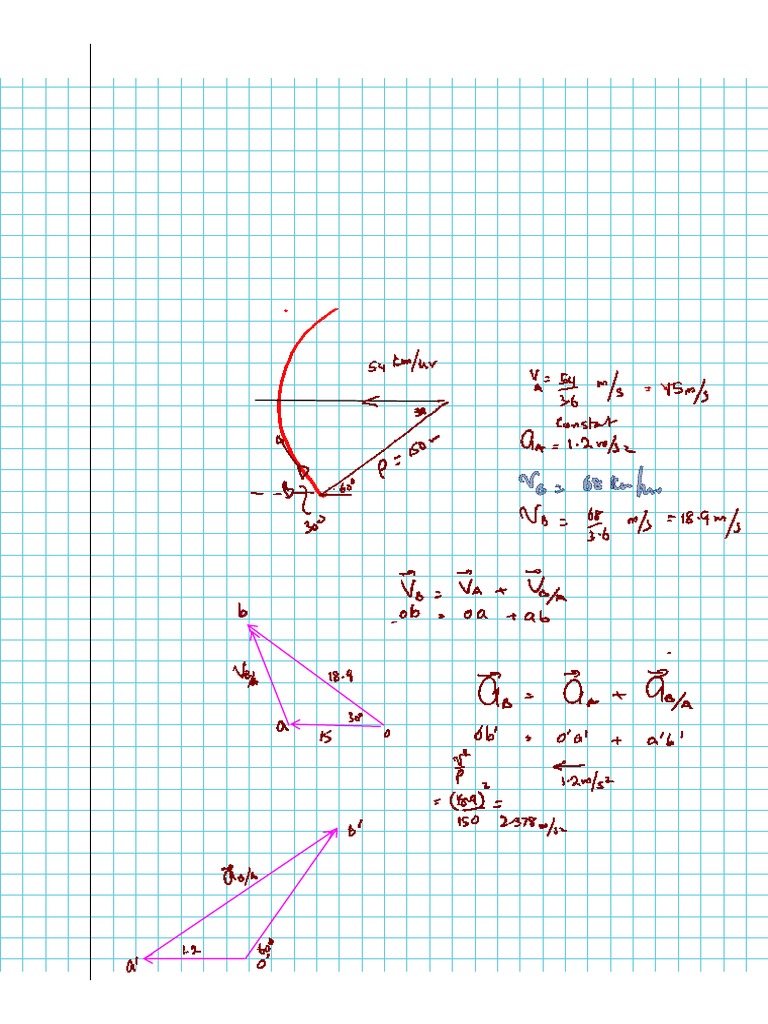 54 km/hr
30
ρ = 150 m
60°
B
30°
V_A = 54/3.6 m/s = 15 m/s
constant
a_A = 1.2 m/s²
V_B = 68 km/hr
V_B = 68/3.6 m/s = 18.9 m/s
V_B = V_A + V_B/A
ob = oa + ab
b
V_B/A
18.9
30°
a
15
o
a_B = a_A + a_B/A
o'b' = o'a' + a'b'
v²/ρ
1.2 m/s²
= (18.9)²/150 = 2.378 m/s²
b'
a_B/A
1.2
60°
a'
o'